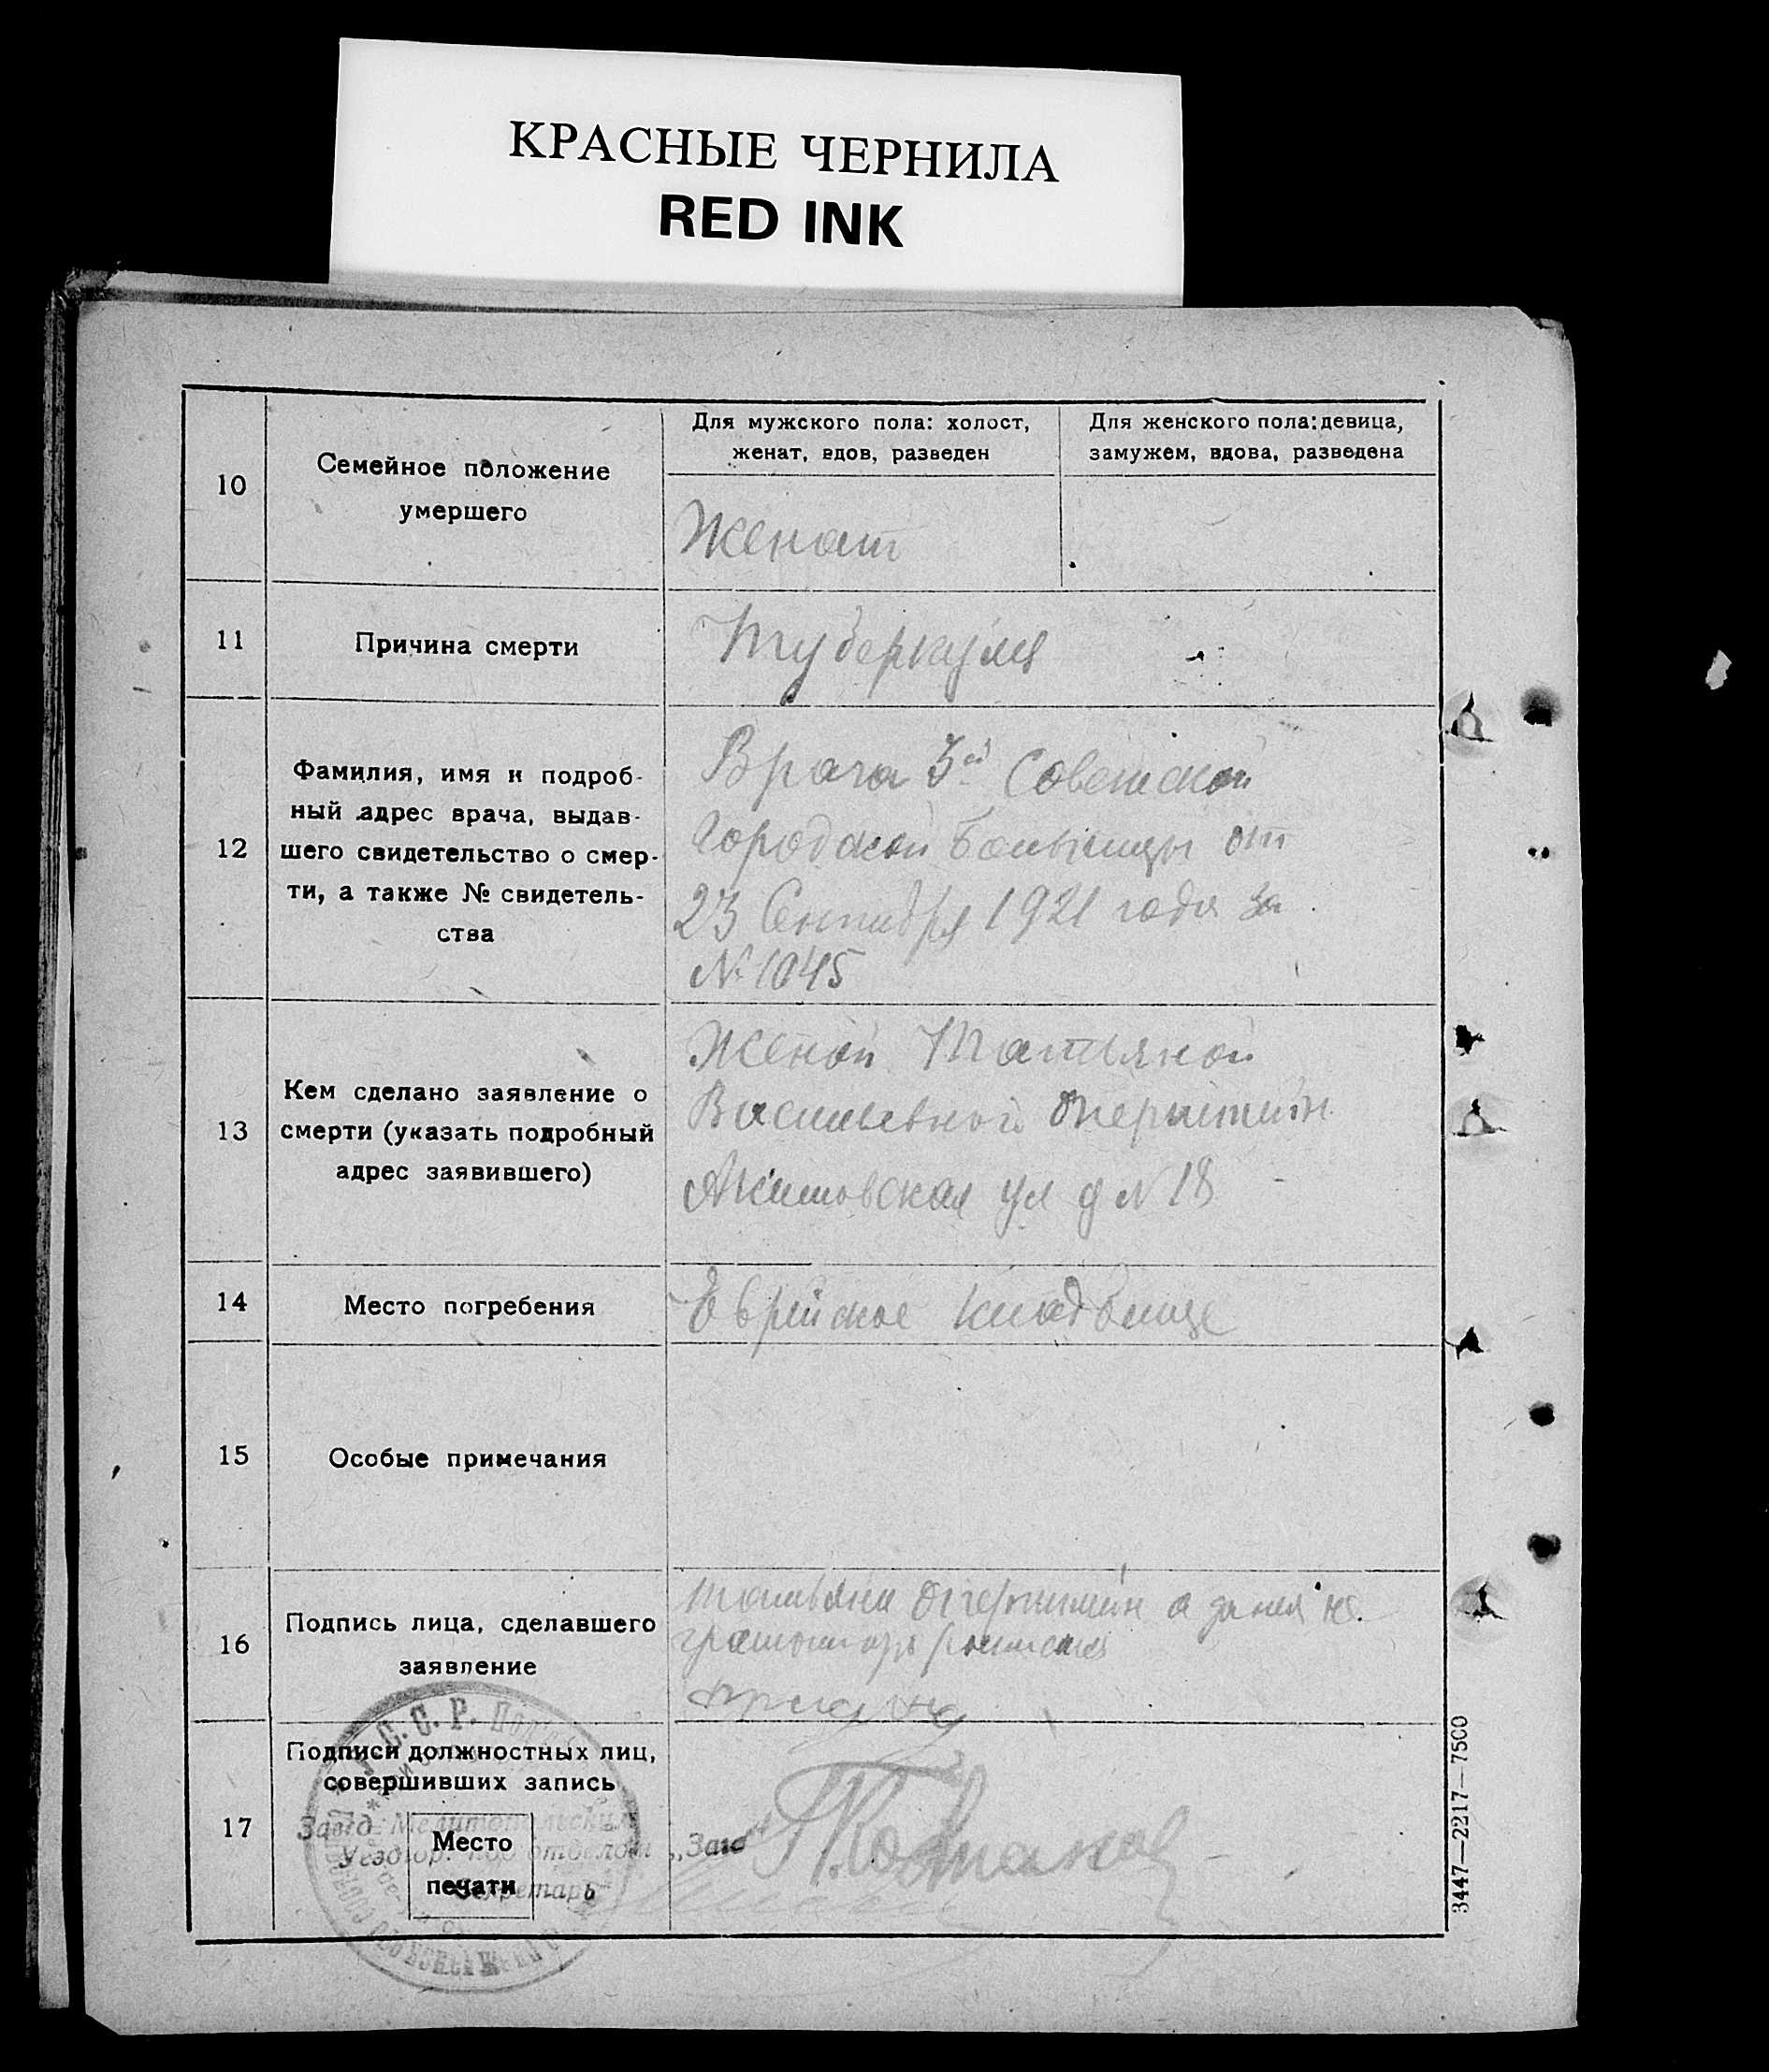 КРАСНЫЕ ЧЕРНИЛА
RED INK
10
Семейное положение
умершего
Для мужского пола: холост,
женат, вдов, разведен
Для женского пола: девица,
замужем, вдова, разведена
Женат
11
Причина смерти
Туберкулез
12
Фамилия, имя и подроб-
ный адрес врача, выдав-
шего свидетельство о смер-
ти, а также № свидетель-
ства
Врача 3й Советской
Городской Больницы от
23 Сентября 1921 года за
№ 1045
13
Кем сделано заявление о
смерти (указать подробный
адрес заявившего)
Женой Татьяной
Васильевной
Акимовская ул д № 18
14
Место погребения
Еврейское кладбище
15
Особые примечания
16
Подпись лица, сделавшего
заявление
а за нея не
17
Подписи должностных лиц,
совершивших запись
Место
печати
С. С. Р.
Завед. Мелитопольским
отделом „Загс"
Секретарь
3447—2217—7500